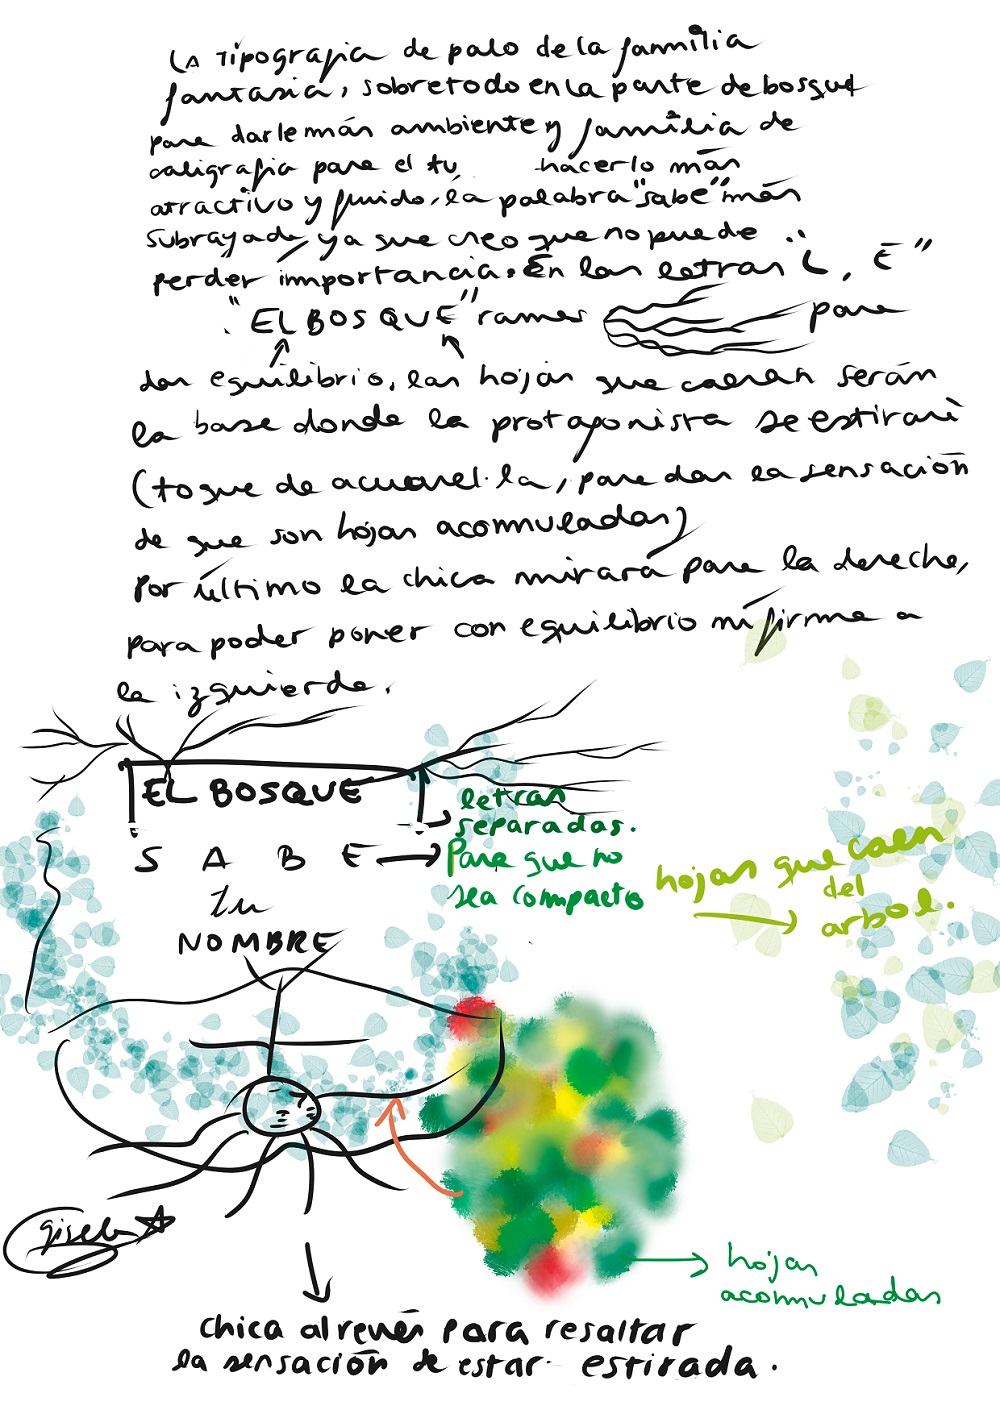 La tipografia de palo de la fammilia
fantasia, sobretodo en la parte de bosque
para darle más ambiente y fammilia de
caligrafia para el tu hacerlo más
atractivo y fluido, la palabra "sabe" más
subrayada, ya que creo que no puede
perder importancia. En las letras "L, E"
"EL BOSQUE" ramas para
dar equilibrio, las hojas que caeran serán
la base donde la protagonista se estirarà
(toque de acuarel·la, para dar la sensación
de que son hojas acommuladas)
Por último la chica mirará para la derecha,
para poder poner con equilibrio mi firma a
la izquierda.
EL BOSQUE
letras
separadas.
S A B E
Para que no
sea compacto
tu
NOMBRE
hojas que caen
del
arbol.
gisela
hojas
acommuladas
chica al revés para resaltar
la sensación de estar estirada.